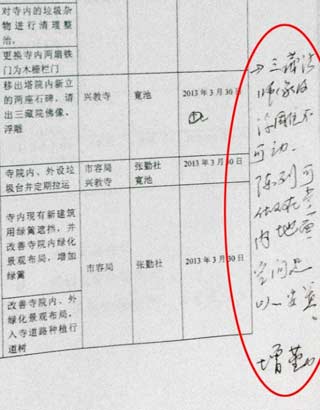 对寺内的垃圾杂
物进行清理整
治。
更换寺内两扇铁
门为木栅栏门
移出塔院内新立
的两座石碑，请
出三藏院佛像、
浮雕
兴教寺
寛池
2013 年 3 月 30 日
①
寺院内、外设垃
圾台并定期拉运
市容局
兴教寺
张勤社
寛池
2013 年 3 月 30 日
寺内现有新建筑
用绿篱遮挡，并
改善寺院内绿化
景观布局，增加
绿篱
改善寺院内、外
绿化景观布局，
入寺道路种植行
道树
市容局
张勤社
2013 年 3 月 30 日
三藏法
师
不
可动.
陈列可
内地面
空间足
以
增